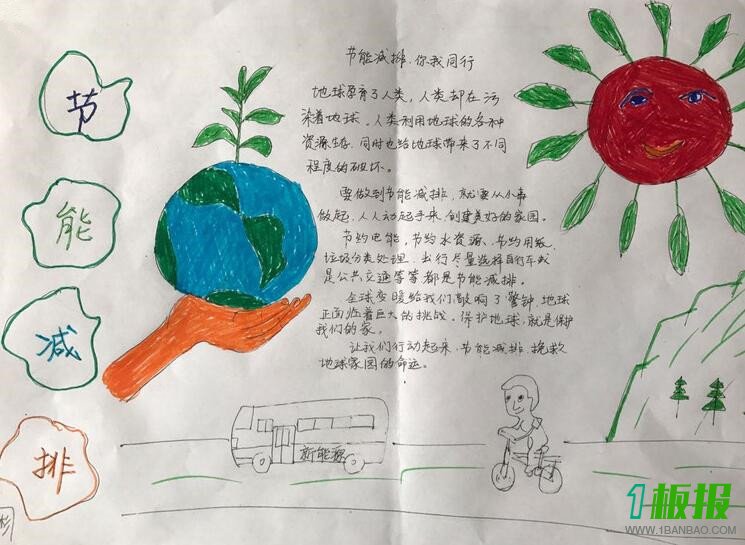 节
能
减
排
节能减排、你我同行
地球孕育了人类，人类却在污
染着地球。人类利用地球的各种
资源生存，同时也给地球带来了不同
程度的破坏。
要做到节能减排，就要从小事
做起，人人动起手来，创建美好的家园。
节约电能，节约水资源、节约用纸，
垃圾分类处理，出行尽量选择自行车或
是公共交通等等都是节能减排。
全球变暖给我们敲响了警钟，地球
正面临着巨大的挑战。保护地球，就是保护
我们的家。
让我们行动起来，节能减排，挽救
地球家园的命运。
新能源
1板报
WWW.1BANBAO.COM